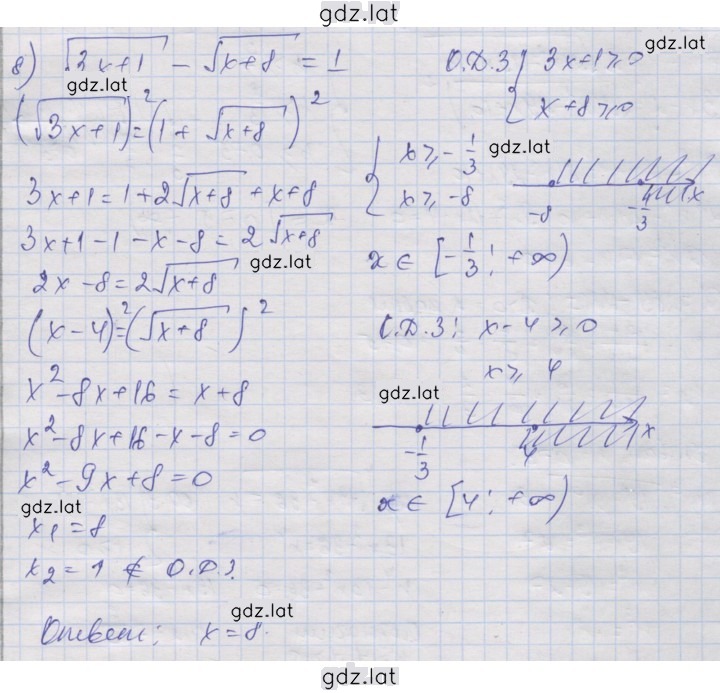 gdz.lat
8) √(3x+1) - √(x+8) = 1
gdz.lat
(√(3x+1))² = (1 + √(x+8))²
3x+1 = 1+2√(x+8) + x+8
3x+1-1-x-8 = 2√(x+8)
gdz.lat
2x-8 = 2√(x+8)
(x-4)² = (√(x+8))²
x²-8x+16 = x+8
x²-8x+16-x-8=0
x²-9x+8=0
gdz.lat
x₁=8
x₂=1 ∉ О.Д.З.
gdz.lat
Ответ: x=8.
gdz.lat
О.Д.З { 3x+1≥0
x+8≥0
gdz.lat
{ x≥-1/3
x≥-8
-8 -1/3 x
x ∈ [-1/3; +∞)
О.Д.З: x-4≥0
x≥4
gdz.lat
-1/3 4 x
x ∈ [4; +∞)
gdz.lat